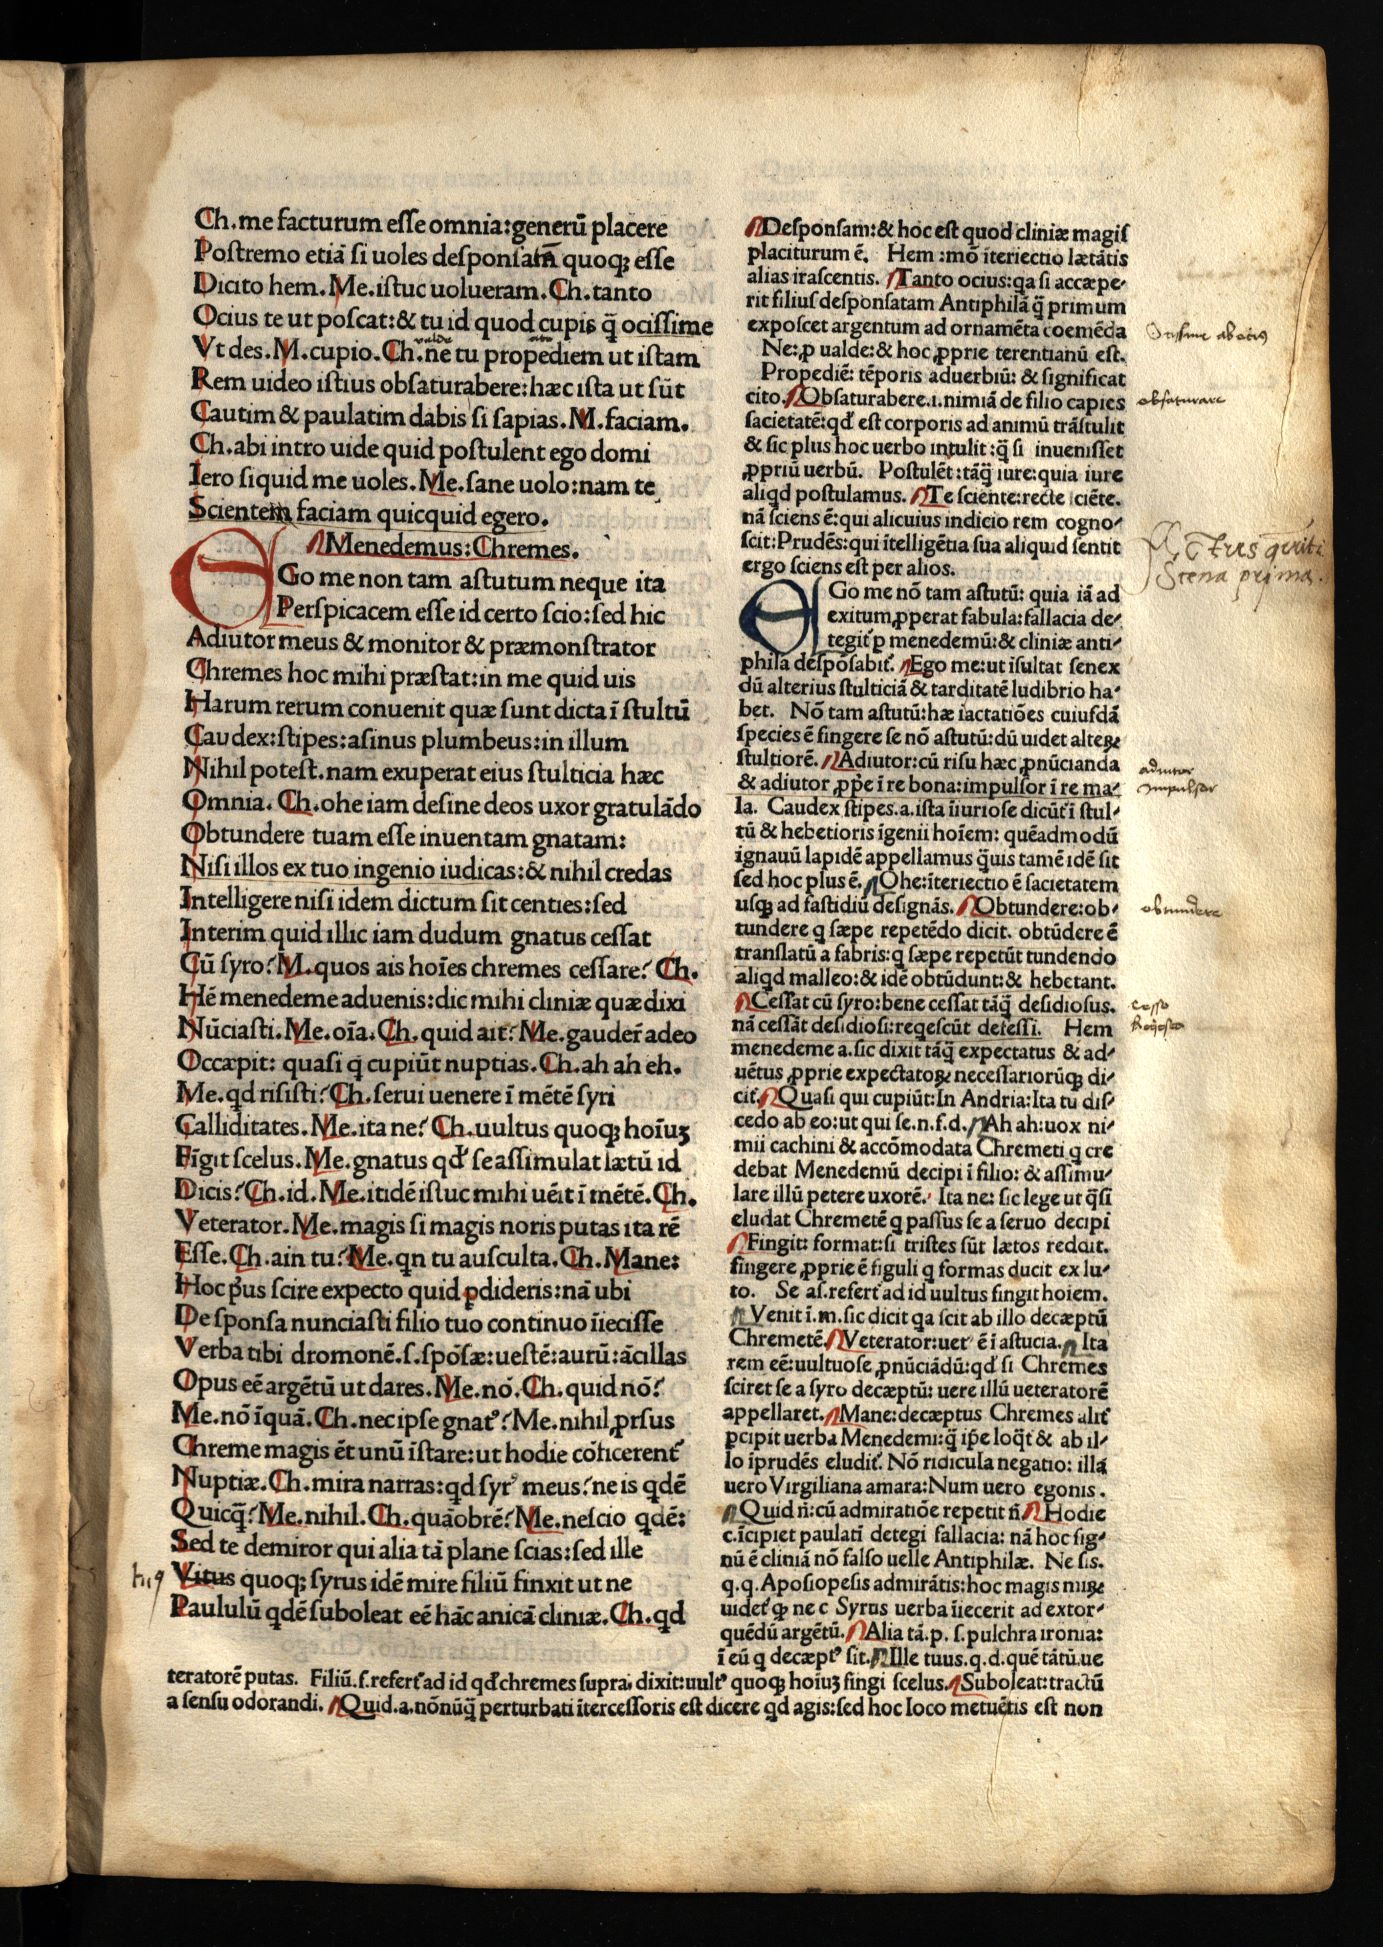 Ch.me facturum eſſe omnia:generū placere
Poſtremo etiā ſi uoles deſponſatā quoqꝫ eſſe
Dicito hem.Me.iſtuc uolueram.Ch.tanto
Ocius te ut poſcat:& tu id quod cupis q̄ ociſſime
Vt des.M.cupio.Ch.ne tu propediem ut iſtam
Rem uideo iſtius obſaturabere:hæc iſta ut ſūt
Cautim & paulatim dabis ſi ſapias.M.faciam.
Ch.abi intro uide quid poſtulent ego domi
Iero ſiquid me uoles.Me.ſane uolo:nam te
Scientem faciam quicquid egero.
Menedemus:Chremes.
EGo me non tam aſtutum neque ita
Perſpicacem eſſe id certo ſcio:ſed hic
Adiutor meus & monitor & præmonſtrator
Chremes hoc mihi præſtat:in me quid uis
Harum rerum conuenit quæ ſunt dicta ī ſtultū
Caudex:ſtipes:aſinus plumbeus:in illum
Nihil poteſt.nam exuperat eius ſtulticia hæc
Omnia. Ch.ohe iam deſine deos uxor gratulādo
Obtundere tuam eſſe inuentam gnatam:
Niſi illos ex tuo ingenio iudicas:& nihil credas
Intelligere niſi idem dictum ſit centies:ſed
Interim quid illic iam dudum gnatus ceſſat
Cū ſyro?M.quos ais hoīes chremes ceſſare? Ch.
Hē menedeme aduenis:dic mihi cliniæ quæ dixi
Nūciaſti.Me.oīa.Ch.quid ait?Me.gauder̄ adeo
Occæpit: quaſi q̄ cupiūt nuptias.Ch.ah ah eh.
Me.qd riſiſti?Ch.ſerui uenere ī mētē ſyri
Calliditates.Me.ita ne?Ch.uultus quoqꝫ hoīuꝫ
Fīgit ſcelus.Me.gnatus qd' ſe aſſimulat lætū id
Dicis?Ch.id.Me.itidē iſtuc mihi uēit ī mētē.Ch.
Veterator.Me.magis ſi magis noris putas ita rē
Eſſe.Ch.ain tu?Me.qn tu auſculta.Ch.Mane:
Hoc p̄us ſcire expecto quid ꝑdideris:nā ubi
Deſponſa nunciaſti filio tuo continuo īieciſſe
Verba tibi dromonē.ſ.ſpōſæ:ueſtē:aurū:ācillas
Opus eē argētū ut dares.Me.nō.Ch.quid nō?
Me.nō īquā.Ch.nec ipſe gnatꝰ?Me.nihil ꝓrſus
Chreme magis ēt unū īſtare:ut hodie cōficerent'
Nuptiæ.Ch.mira narras:qd ſyrꝰ meus?ne is qdē
Quicq̄?Me.nihil.Ch.quāobrē?Me.neſcio qdē:
Sed te demiror qui alia tā plane ſcias:ſed ille
Vitus quoqꝫ ſyrus idē mire filiū finxit ut ne
Paululū qdē ſuboleat eē hāc anicā cliniæ.Ch.qd
Deſponſam:& hoc eſt quod cliniæ magiſ
placiturum ē. Hem :mō īteriectio lætātis
alias iraſcentis. Tanto ocius:qa ſi accæpe-
rit filius deſponſatam Antiphilā q̄ primum
expoſcet argentum ad ornamēta coemēda
Ne:ꝓ ualde:& hoc ꝓprie terentianū eſt.
Propediē: tēporis aduerbiū: & ſignificat
cito.Obſaturabere.i.nimiā de filio capies
ſacietatē:qd' eſt corporis ad animū trāſtulit
& ſic plus hoc uerbo intulit :q̄ ſi inueniſſet
ꝓpriū uerbū. Poſtulēt :tāq̄ iure:quia iure
aliqd poſtulamus. Te ſciente:recte ſciēte.
nā ſciens ē:qui alicuius indicio rem cogno-
ſcit:Prudēs:qui ītelligētia ſua aliquid ſentit
ergo ſciens eſt per alios.
EGo me nō tam aſtutū: quia iā ad
exitum ꝓperat fabula:fallacia de-
tegit' ꝑ menedemū:& cliniæ anti-
phila deſpōſabit'. Ego me:ut iſultat ſenex
dū alterius ſtulticiā & tarditatē ludibrio ha-
bet. Nō tam aſtutū:hæ iactatiōes cuiuſdā
ſpecies ē fingere ſe nō aſtutū:dū uidet alteꝝ
ſtultiorē. Adiutor:cū riſu hæc ꝓnūcianda
& adiutor ꝓp̄e ī re bona:impulſor ī re ma-
la. Caudex ſtipes.a.iſta īiurioſe dicūt' ī ſtul-
tū & hebetioris īgenii hoīem: quēadmodū
ignauū lapidē appellamus q̄uis tamē idē ſit
ſed hoc plus ē. Ohe:īteriectio ē ſacietatem
uſqꝫ ad faſtidiū deſignās. Obtundere:ob-
tundere q ſæpe repetēdo dicit. obtūdere ē
tranſlatū a fabris:q ſæpe repetūt tundendo
aliqd malleo:& idē obtūdunt:& hebetant.
Ceſſat cū ſyro:bene ceſſat tāq̄ deſidioſus.
nā ceſſāt deſidioſi:reqeſcūt defeſſi. Hem
menedeme a.ſic dixit tāq̄ expectatus & ad-
uētus ꝓprie expectatoꝝ neceſſariorūqꝫ di-
cit'. Quaſi qui cupiūt:In Andria:Ita tu diſ-
cedo ab eo:ut qui ſe.n.f.d. Ah ah:uox ni-
mii cachini & accōmodata Chremeti q cre
debat Menedemū decipi ī filio: & aſſimu-
lare illū petere uxorē. Ita ne: ſic lege ut q̄ſi
eludat Chremetē q paſſus ſe a ſeruo decipi
Fingit: format:ſi triſtes ſūt lætos reddit.
fingere ꝓprie ē figuli q formas ducit ex lu-
to. Se aſ.refert' ad id uultus fingit hoiem.
Venit ī.m.ſic dicit qa ſcit ab illo decæptū
Chremetē. Veterator:uet' ē ī aſtucia. Ita
rem eē:uultuoſe ꝓnūciādū:qd' ſi Chremes
ſciret ſe a ſyro decæptū: uere illū ueteratorē
appellaret. Mane:decæptus Chremes alit'
ꝑcipit uerba Menedemi:q̄ ip̄e loq̄t' & ab il-
lo īprudēs eludit'. Nō ridicula negatio: illa
uero Virgiliana amara:Num uero egonis.
Quid n̄:cū admiratiōe repetit n̄ Hodie
c.īcipiet paulati detegi fallacia: nā hoc ſig-
nū ē cliniā nō falſo uelle Antiphilæ. Ne ſis.
q.q.Apoſiopeſis admirātis:hoc magis miꝝ
uidet' qꝫ ne c Syrus uerba īiecerit ad extor-
quēdū argētū. Alia tā.p. ſ.pulchra ironia:
ī eū q decæptꝰ ſit. Ille tuus.q.d.quē tātū.ue
teratorē putas. Filiū.ſ.refert' ad id qd' chremes ſupra dixit:uultꝰ quoqꝫ hoīuꝫ fingi ſcelus. Suboleat:tractū
a ſenſu odorandi. Quid.a.nōnūq̄ perturbati īterceſſoris eſt dicere qd agis:ſed hoc loco metuētis eſt non
valde
obſaturare
Actus quīti
Scena prima.
adiutor
impulſor
obtundere
ceſſo